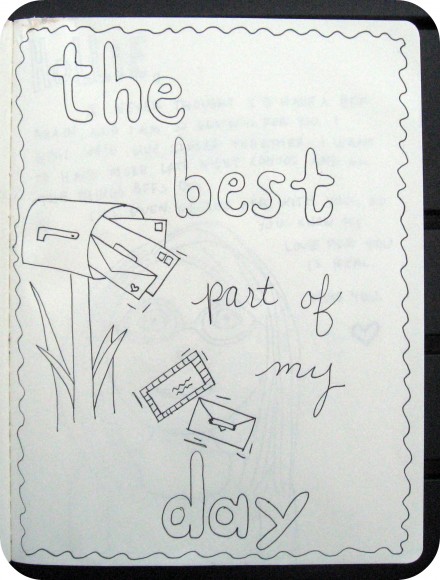 the
best
part of
my
day